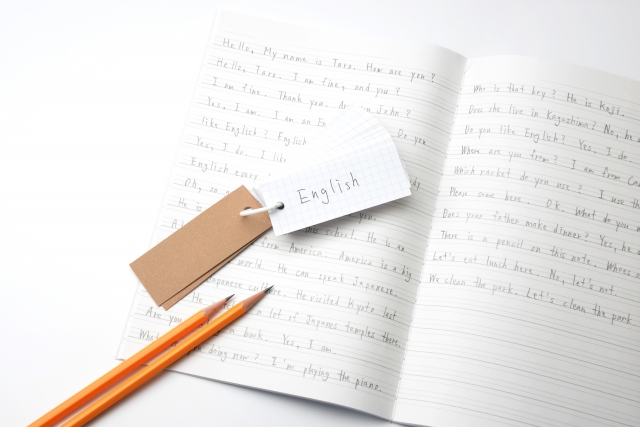 Hello, My name is Taro. How are you?
Hello, Taro. I am fine, and you?
I am fine. Thank you. John?
Yes, I am. I am an Do you
like English? English
Yes, I do. I
English every
Oh, so
He is
this school. He is an
from America. America is a big
world. He can speak Japanese.
Japanese culture. He visited Kyoto last
He lot of Japanes temples there.
Are you book. Yes, I am.
What doing now? I'm playing the piano.
English
Who is that boy? He is Koji.
Does she live in Kagoshima? No, he
Do you like English? Yes, I do.
Where are you from? I am from
Which racket do you use? I use th
Please come here. O.K. What do you
Does your father make dinner? Yes, he
There is a pencil on this note.
Let's eat lunch here. No, let's not.
We clean the park. Let's clean the park